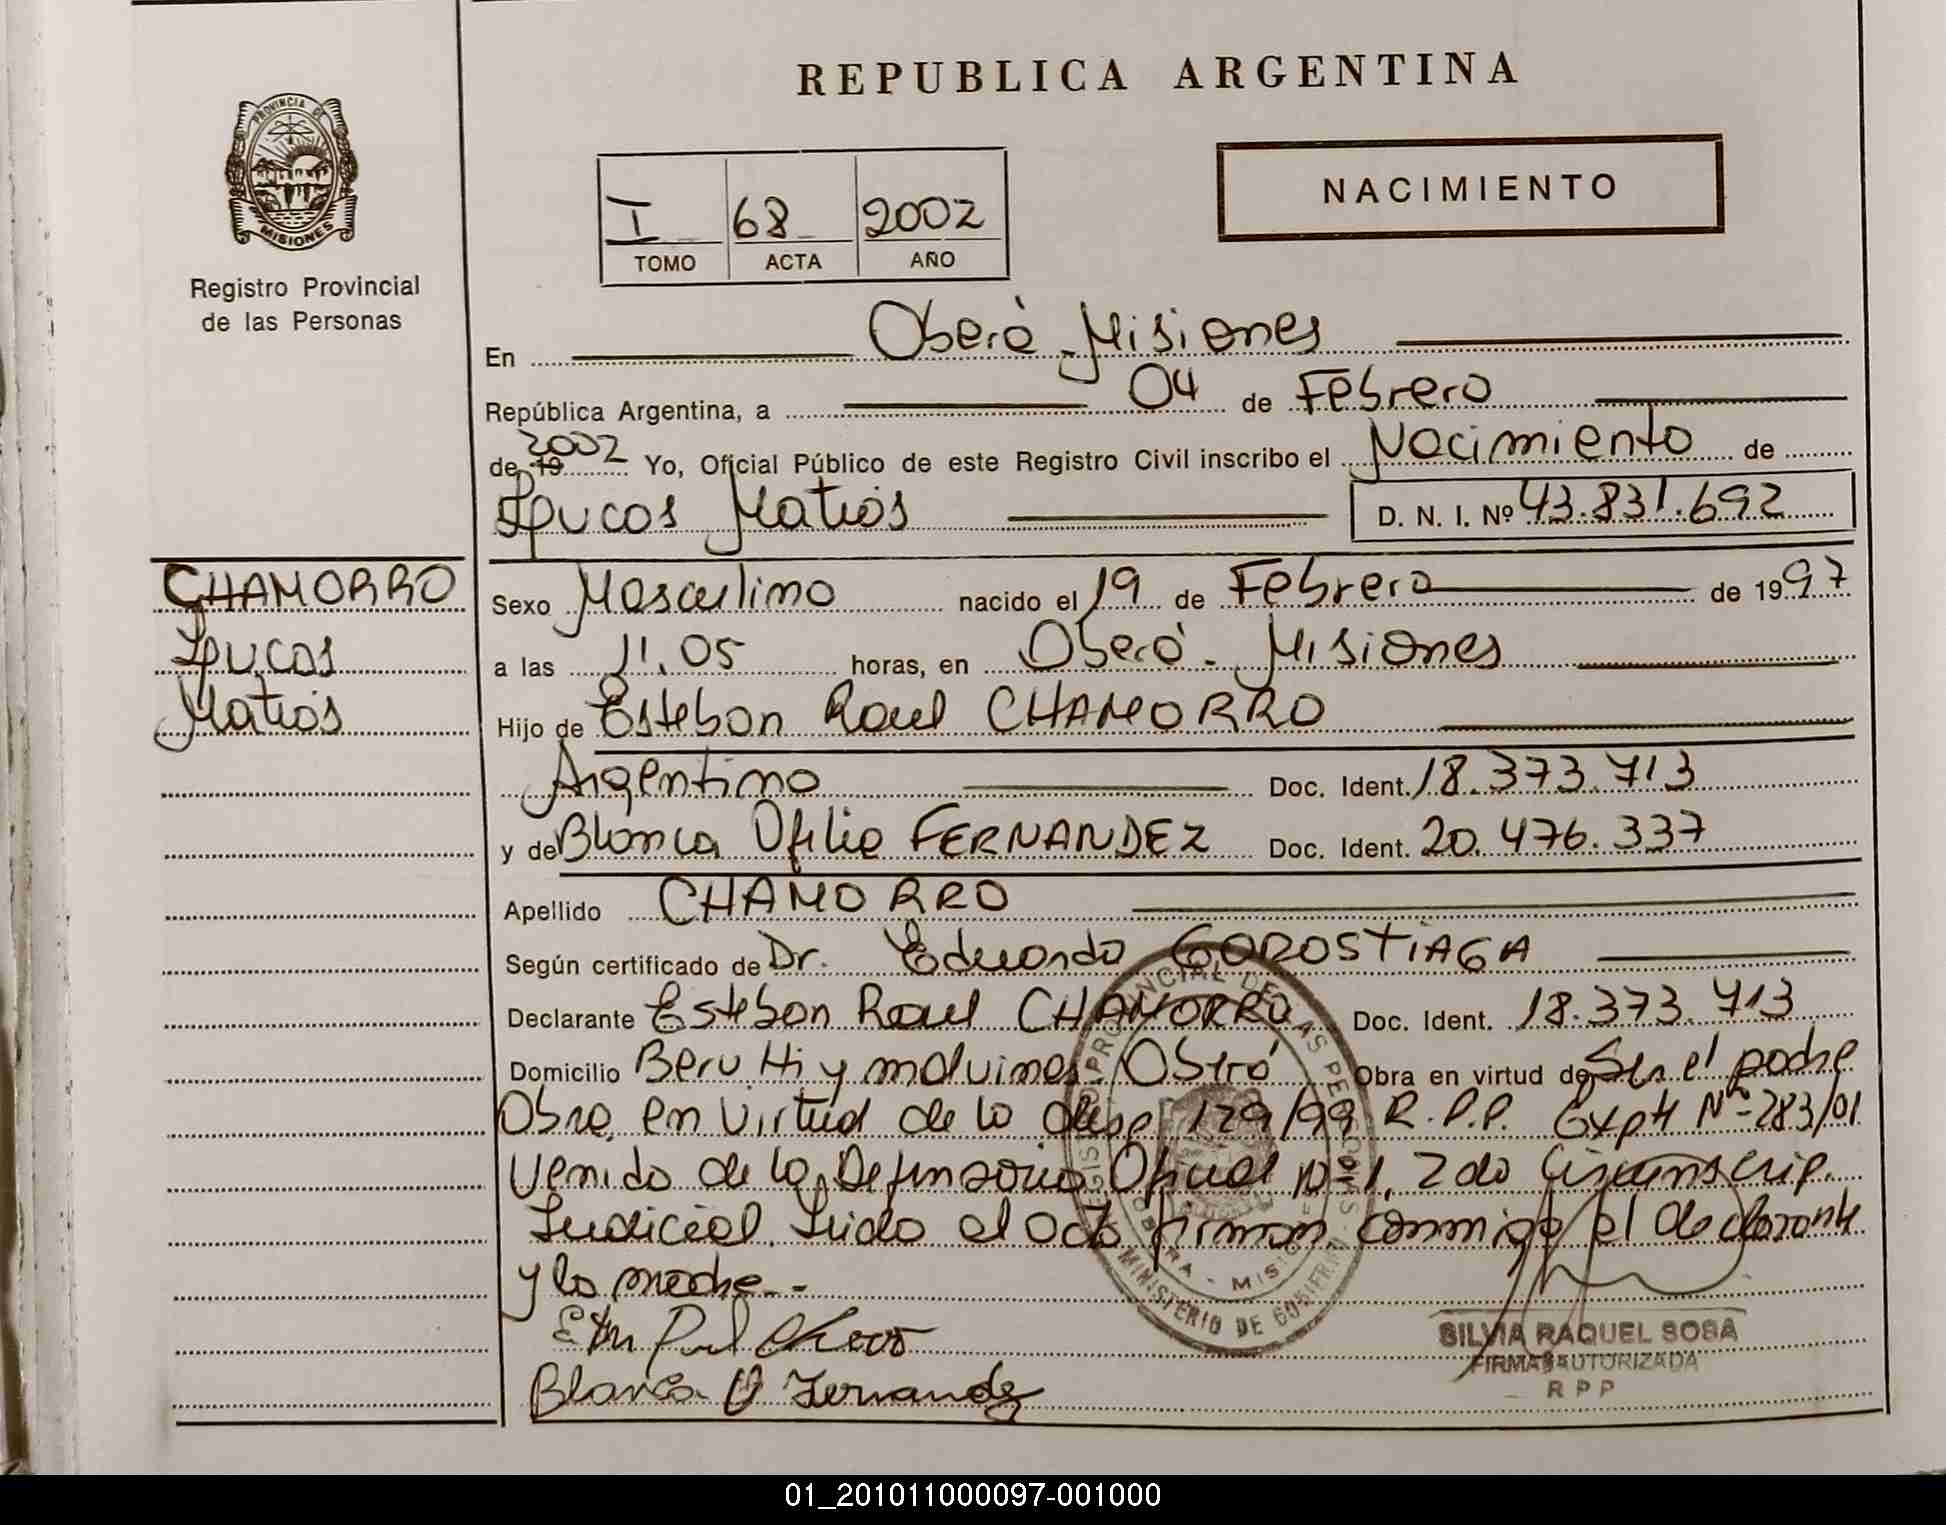 REPUBLICA ARGENTINA
PROVINCIA DE
MISIONES
Registro Provincial
de las Personas
I 68 2002
TOMO ACTA AÑO
NACIMIENTO
En Oberá - Misiones
República Argentina, a 04 de Febrero
de 19 2002 Yo, Oficial Público de este Registro Civil inscribo el Nacimiento de
Lucas Matías D. N. I. Nº 43.831.692
CHAMORRO
Lucas
Matías
Sexo Masculino nacido el 19 de Febrero de 1997
a las 11.05 horas, en Oberá - Misiones
Hijo de Esteban Raul CHAMORRO
Argentino Doc. Ident. 18.373.713
y de Blanca Ofilia FERNANDEZ Doc. Ident. 20.476.337
Apellido CHAMORRO
Según certificado de Dr. Eduardo GOROSTIAGA
Declarante Esteban Raul CHAMORRO Doc. Ident. 18.373.713
Domicilio Berutti y malvinas - Oberá Obra en virtud de Ser el padre
Obra en virtud de la disp 129/99 R.P.P. Expte Nº 283/01
Venido de la Defensoria Oficial Nº 1, 2da Circunscrip.
Judicial. Leida el acta firman conmigo el declarante
y la madre.-
Blanca O Fernandez
SILVIA RAQUEL SOSA
FIRMA AUTORIZADA
R P P
MINISTERIO DE GOBIERNO
01_201011000097-001000